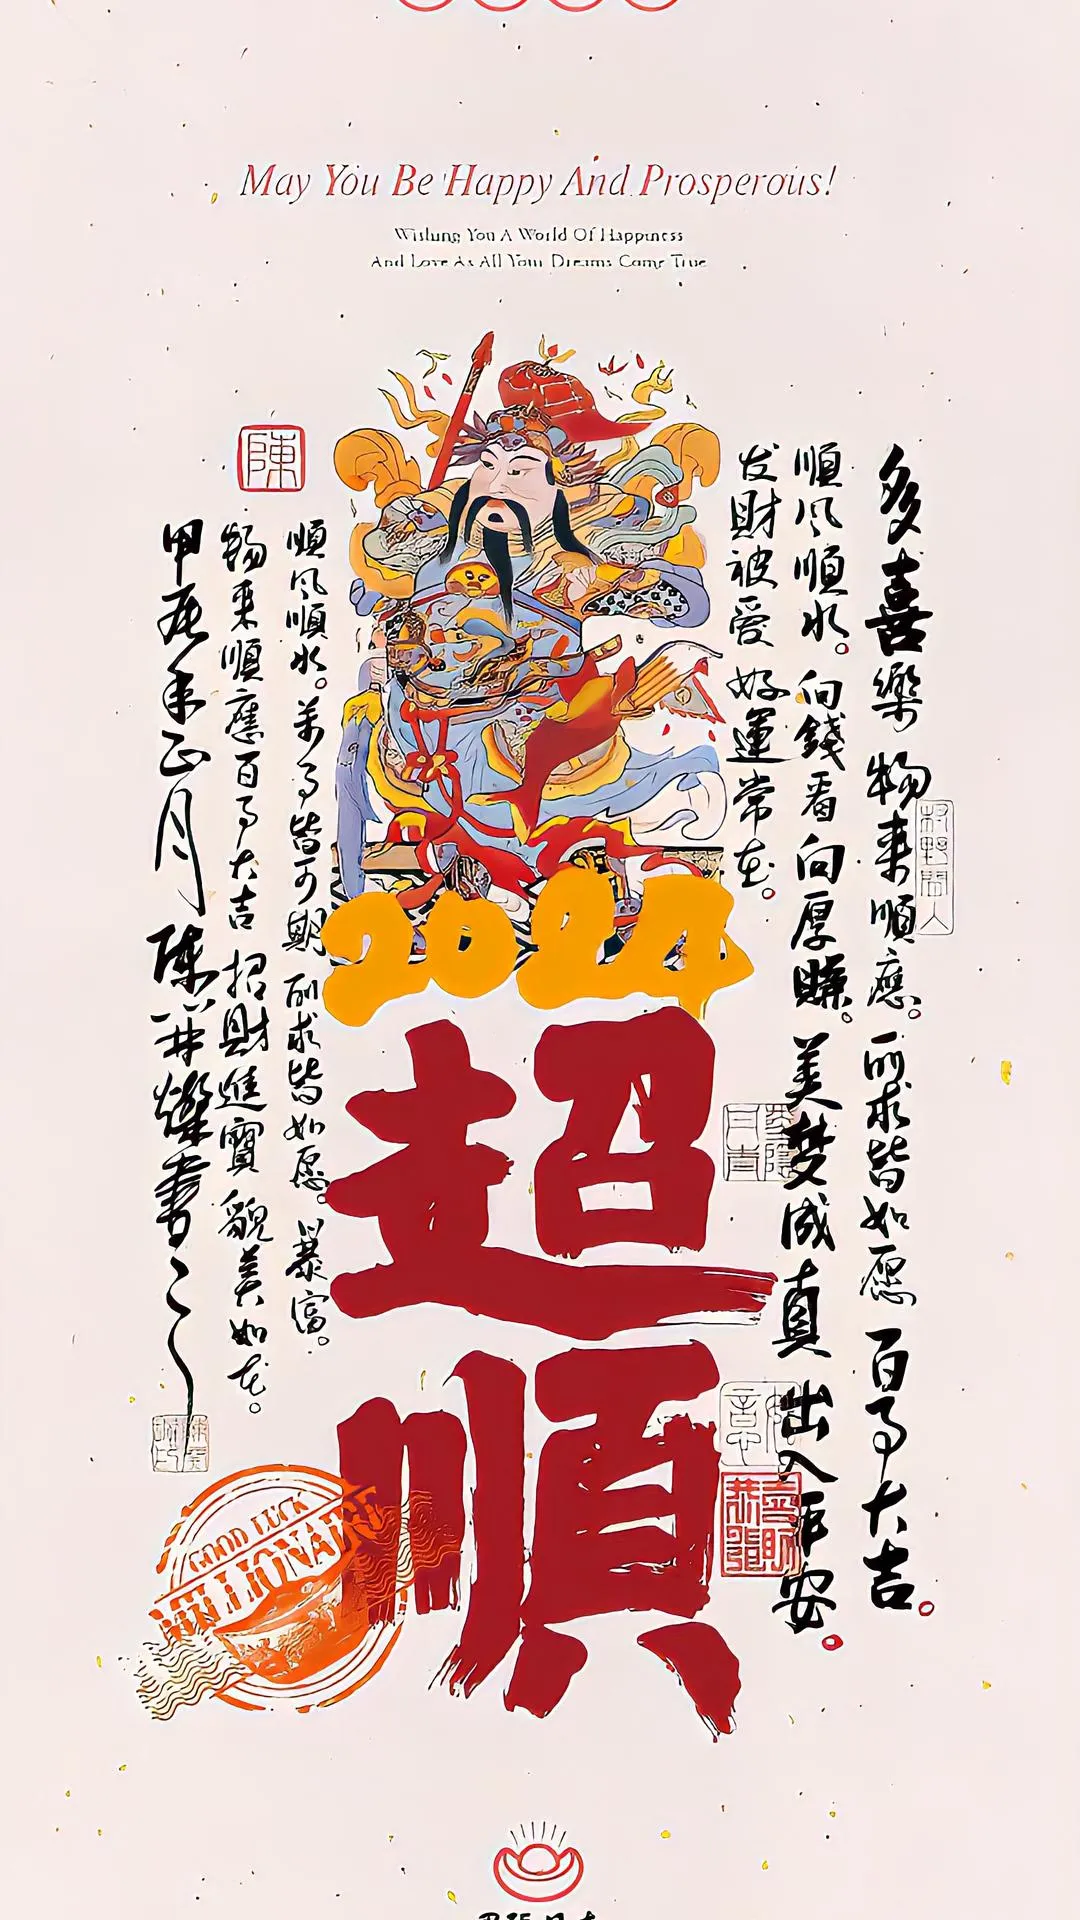 May You Be Happy And Prosperous!
Wishing You A World Of Happiness
And Love As All Your Dreams Come True
多喜樂 物来順應。所求皆如愿 百事大吉。
順风順水。向錢看向厚賺。美梦成真 出入平安。
发財被爱 好運常在。
2024
超
順
順风順水。万事皆可期 所求皆如愿。暴富。
物来順應百事大吉 招財進寶 貌美如花。
甲辰年正月 陳
書
陳
GOOD LUCK
MILLIONAIRE